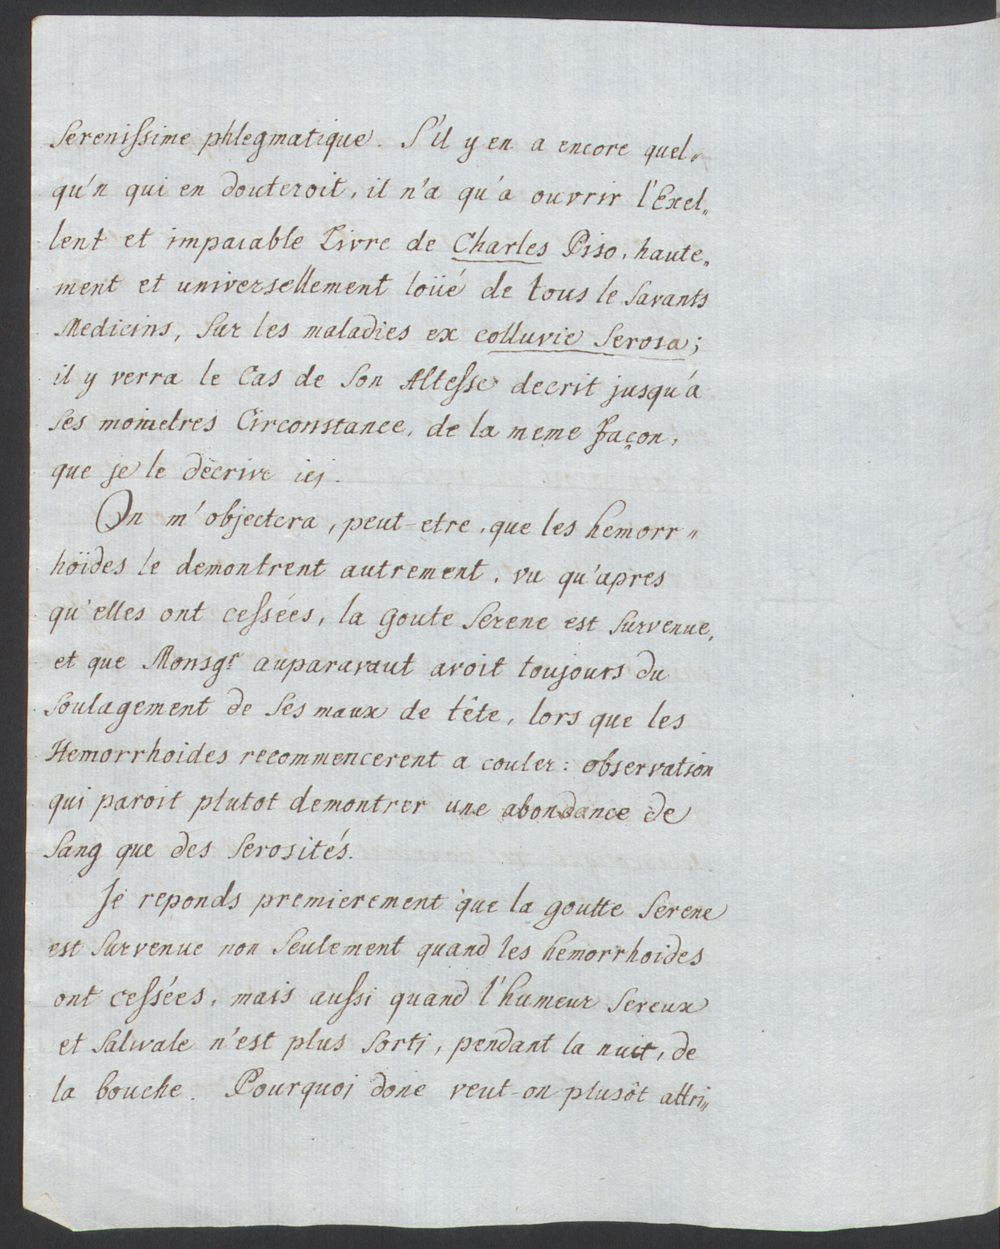 Serenissime phlegmatique. S'il y en a encore quel„
qu'n qui en douteroit, il n'a qu'a ouvrir l'Exel„
lent et impaiable Livre de Charles Piso, haute„
ment et universellement loüé de tous le Savants
Medicins, Sur les maladies ex colluvie Serosa;
il y verra le Cas de Son Altesse decrit jusqu'a
Ses moindres Circonstance, de la meme façon,
que je le décrive ici.
On m'objectera, peut-etre, que les hemorr„
hoïdes le demontrent autrement, vu qu'apres
qu'elles ont cessées, la goute Serene est Survenue,
et que Monsgr auparavant avoit toujours du
Soulagement de Ses maux de tête, lors que les
Hemorrhoides recommencerent a couler: observation
qui paroit plutot demontrer une abondance de
Sang que des Serosités.
Je reponds premierement que la goutte Serene
est Survenue non Seulement quand les hemorrhoides
ont cessées, mais aussi quand l'humeur Sereux
et Salivale n'est plus Sorti, pendant la nuit, de
la bouche. Pourquoi donc veut-on plusôt attri„